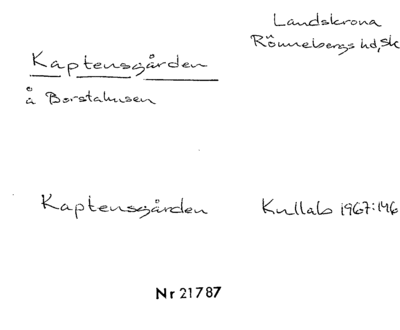 Landskrona
Rönnebergs hd, sk
Kaptensgården
å Borstahusen
Kaptensgården Kullab 1967:146
Nr 21787